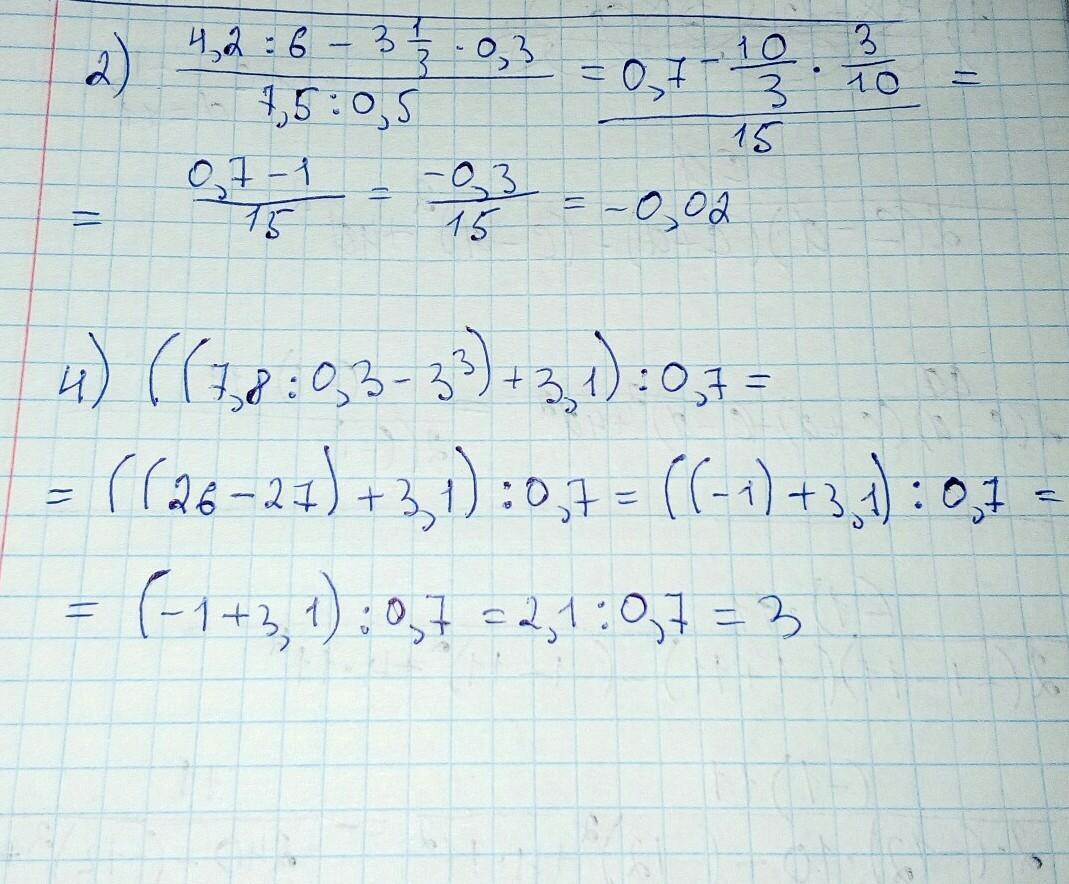 2) (4,2 : 6 − 3 1/3 · 0,3)/(7,5 : 0,5) = (0,7 − 10/3 · 3/10)/15 =
= (0,7 − 1)/15 = (−0,3)/15 = −0,02
4) ((7,8 : 0,3 − 3³) + 3,1) : 0,7 =
= ((26 − 27) + 3,1) : 0,7 = ((−1) + 3,1) : 0,7 =
= (−1 + 3,1) : 0,7 = 2,1 : 0,7 = 3